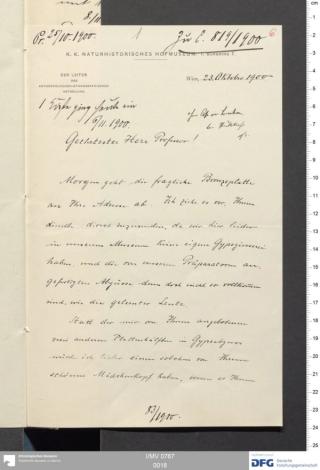 Pr. 25/10.1900.
1
Zu E. 819/1900
6
K. K. NATURHISTORISCHES HOFMUSEUM
DER LEITER
DER
ANTHROPOLOGISCH-ETHNOGRAPHISCHEN
ABTHEILUNG
Wien, 23. Oktober 1900
1
8/11.1900.
Geehrtester Herr Professor!
Morgen geht die fragliche Bronzeplatte
an Ihre Adresse ab. Ich ziehe es vor, Ihnen
direct zuzusenden, da wir hier leider
in unserem Museum keine eigene Gypsgiesserei
haben, und die von unseren Präparatoren an-
gefertigten Abgüsse denn doch nicht so vollkommen
sind, wie die gelernter Leute.
Statt der mir von Ihnen angebotenen
zwei anderen in Gypsabguss
würde ich lieber einen solchen von Ihrem
schönen Mädchenkopf haben, wenn es Ihnen
83/1900.
UMV 0767
0018
DFG
Deutsche
Forschungsgemeinschaft